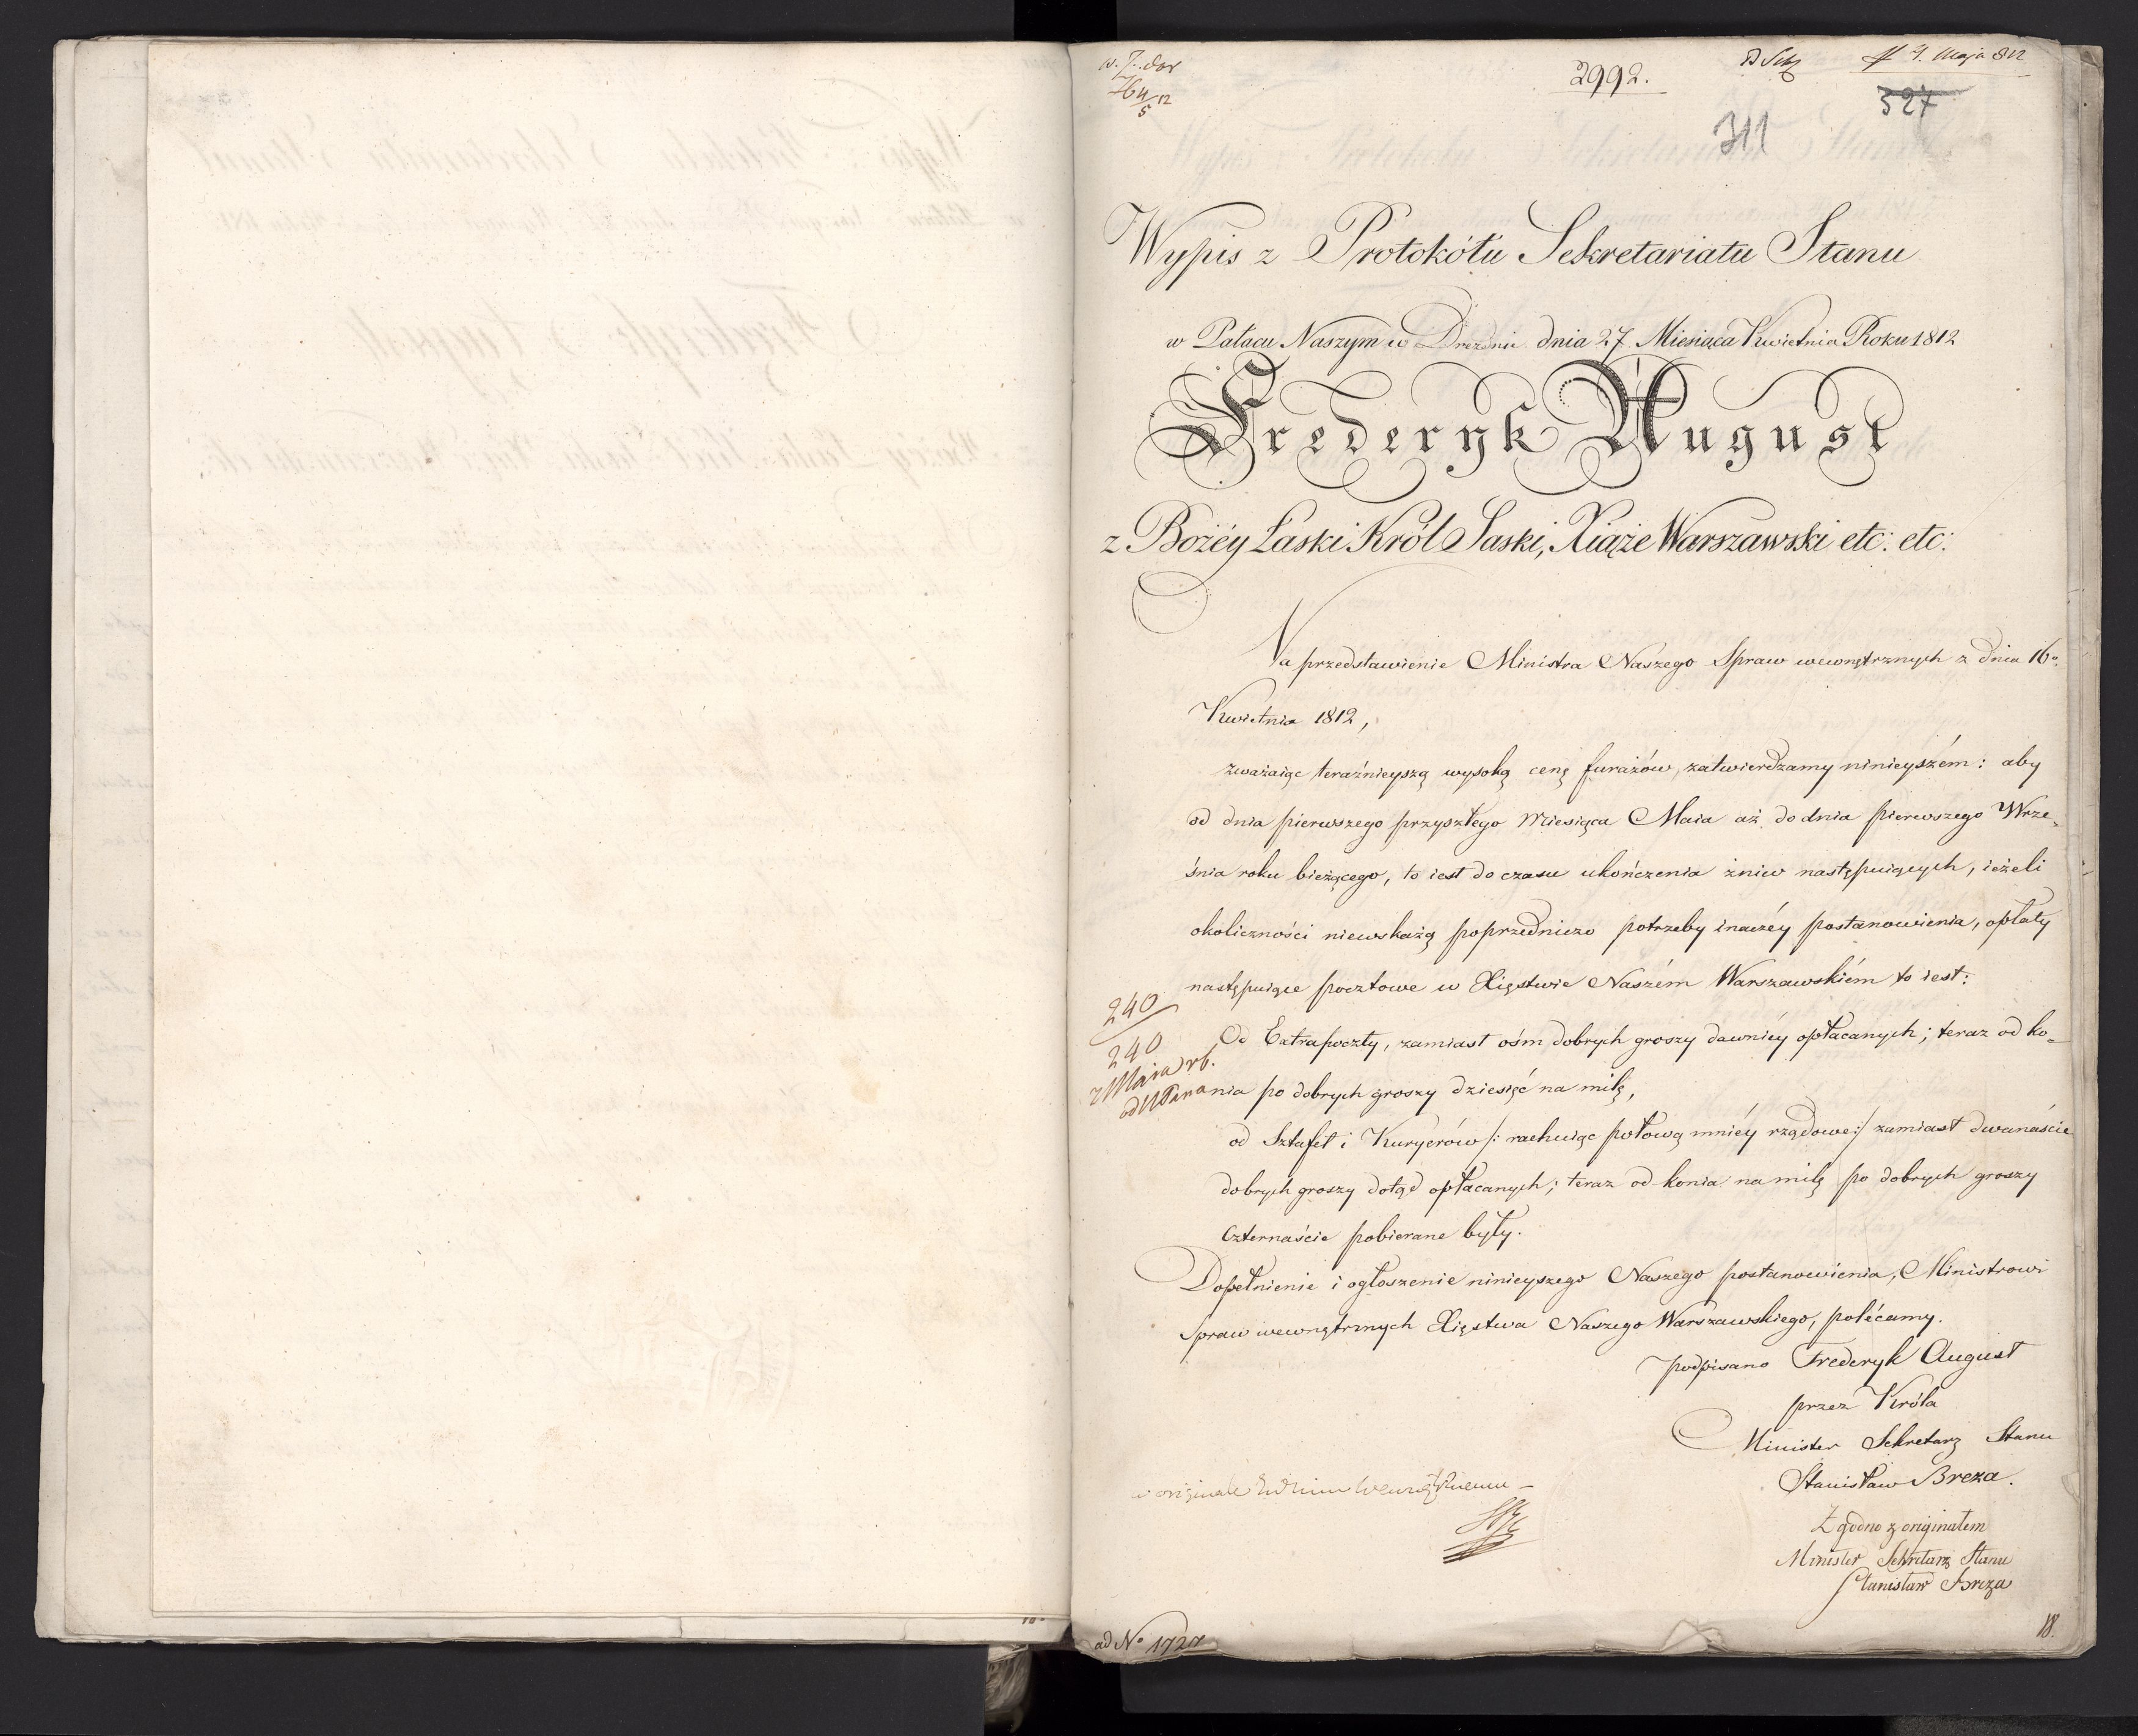 2992.
4. Maja 812
327
311
Wypis z Protokółu Sekretariatu Stanu
w Pałacu Naszym w Dreznie dnia 27 Miesiąca Kwietnia Roku 1812
Frederyk August
z Bożéy Łaski Król Saski, Xiąże Warszawski etc: etc:
Na przedstawienie Ministra Naszego Spraw wewnętrznych z dnia 16o
Kwietnia 1812,
zważaiąc teraźnieyszą wysoką cenę furażów, zatwierdzamy ninieyszém: aby
od dnia pierwszego przyszłego Miesiąca Maia aż do dnia pierwszego Wrze-
śnia roku bieżącego, to iest do czasu ukończenia żniw następuiących, ieżeli
okoliczności niewskażą poprzedniczo potrzeby inaczéy postanowienia, opłaty
następuiące pocztowe w Xięstwie Naszém Warszawskiém to iest:
240
240
7 Maia rb.
Od Extrapoczty, zamiast ośm dobrych groszy dawniéy opłacanych; teraz od ko-
nia po dobrych groszy dziesięć na milę,
od Sztafet i Kuryerów /: rachuiąc połową mniéy rządowe :/ zamiast dwanaście
dobrych groszy dotąd opłacanych; teraz od konia na milę po dobrych groszy
czternaście pobierane były.
Dopełnienie i ogłoszenie ninieyszego Naszego postanowienia, Ministrowi
Spraw wewnętrznych Xięstwa Naszego Warszawskiego, polécamy.
podpisano Frederyk August
przez Króla
Minister Sekretarz Stanu
Stanisław Breza.
Zgodno z originałem
Minister Sekretarz Stanu
Stanisław Breza
ad No 1727
18.